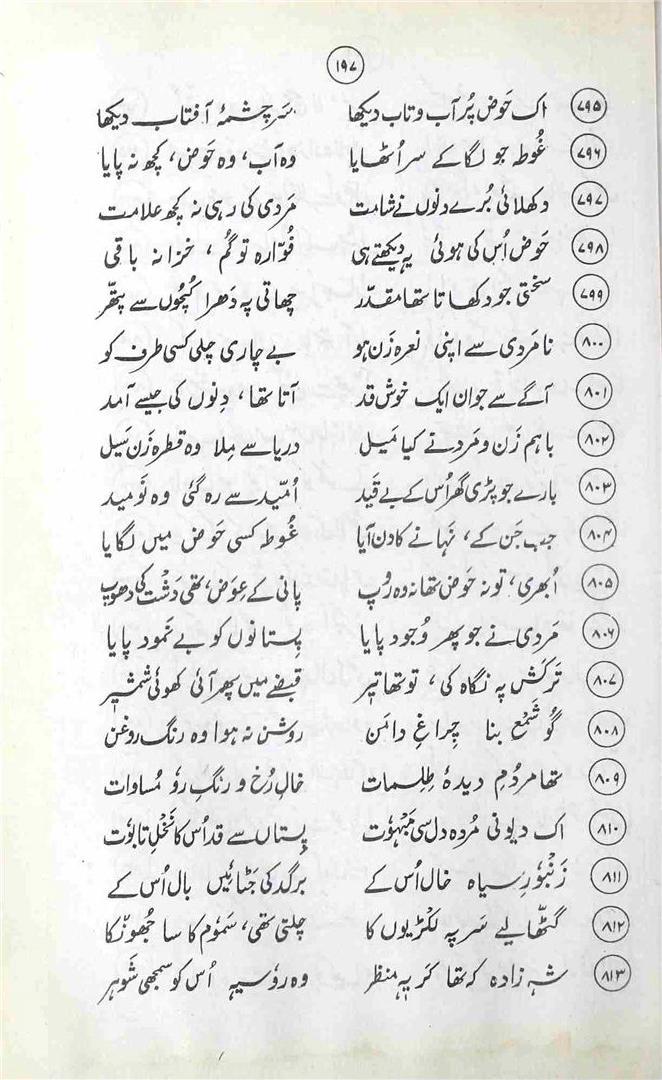 ۱۹۷
۷۹۵ اک حَوض پُر آب و تاب دیکھا سَرچشمۂ آفتاب دیکھا
۷۹۶ غُوطہ جو لگا کے سر اُٹھایا وہ آب، وہ حَوض، کچھ نہ پایا
۷۹۷ دکھلائی بُرے دنوں نے شامت مَردی کی رہی نہ کچھ علامت
۷۹۸ حَوض اُس کی ہوئی یہ دیکھتے ہی فُوّارہ تو گُم، خزانہ باقی
۷۹۹ سختی جو دکھاتا تھا مقدّر چھاتی پہ دَھرا کُچوں سے پتھّر
۸۰۰ نامَردی سے اپنی نعرہ زَن ہو بے چاری چلی کسی طرف کو
۸۰۱ آگے سے جوان ایک خوش قد آتا تھا، دِنوں کی جیسے آمد
۸۰۲ باہم زَن و مَرد نے کیا مَیل دریا سے مِلا وہ قطرہ زَن سَیل
۸۰۳ بارے جو پڑی گھر اُس کے بے قَید اُمّید سے رہ گئی وہ نَومید
۸۰۴ جب جَن کے، نہانے کا دن آیا غُوطہ کسی حَوض میں لگایا
۸۰۵ اُبھری، تو نہ حَوض تھا نہ وہ رُوپ پانی کے عِوَض، تھی دَشْت کی دھوپ
۸۰۶ مَردی نے جو پھر وُجود پایا پِستانوں کو بے نَمود پایا
۸۰۷ تَرکَش پہ نگاہ کی، تو تھا تیر قبضے میں پھر آئی کھوئی شمشیر
۸۰۸ گو شَمْع بنا چِراغِ دامَن روشن نہ ہوا وہ رنگ روغن
۸۰۹ تھا مردُمِ دیدۂ طِلِسمات خالِ رُخ و رنگِ رو مُساوات
۸۱۰ اک دیونی مُردہ دل سی مَبْہُوت پِستاں سے قد اُس کا نَخْلِ تابُوت
۸۱۱ زَنْبُورِ سیاہ خال اُس کے برگد کی جٹائیں بال اُس کے
۸۱۲ گٹھّا لیے سَر پہ لکڑیوں کا چلتی تھی، سَمُوم کا سا جھُونکا
۸۱۳ شہ زادہ کہ تھا کَرِیہ منظر وہ رُوسِیہ اُس کو سمجھی شَوہر